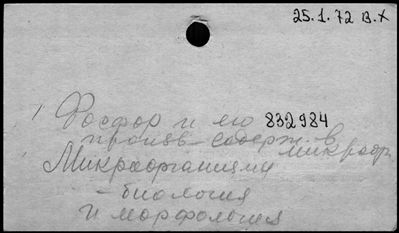 25.1.72 В.Х
Фосфор и его 832984
произв - содерж. в микроорг.
Микроорганизмы
- биология
и морфология